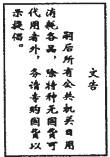 文告
嗣后所有公共机关日用
消耗各品，除特种无国货可
代用者外，务请专购国货以
示提倡。